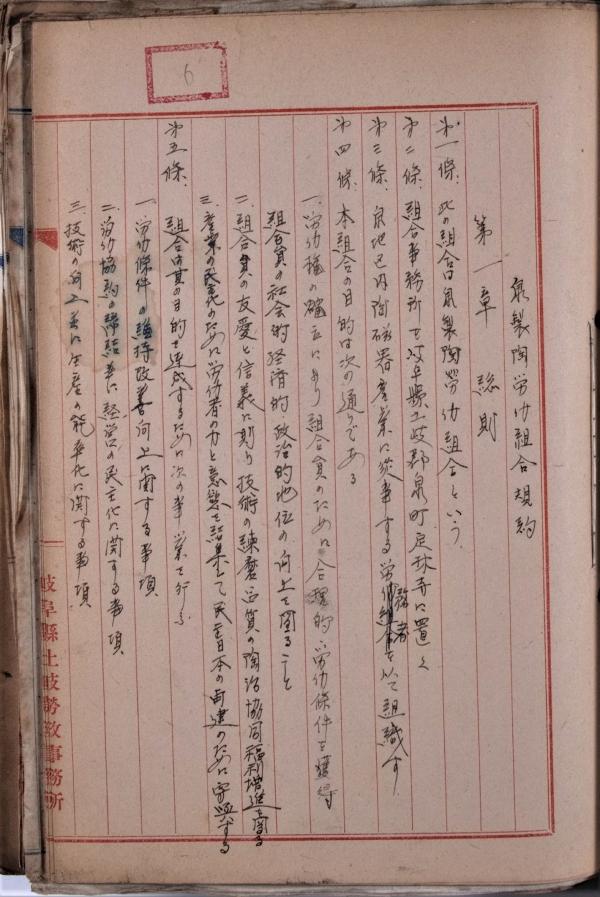 6
泉製陶労仂組合規約
第一章 総則
第一條、此の組合は泉製陶勞仂組合という、
第二條、組合事務所を岐阜縣土岐郡泉町定林寺に置く
第三條、泉地区内陶磁器産業に從事する労仂者を以て組織す
第四條、本組合の目的は次の通りである
一、労仂権の確立にあり組合員のために合理的い労仂條件を獲得
組合員の社会的経済的政治的地位の向上を図ること
二、組合員の友愛と信義に則り技術の練磨品質の陶冶協同福利増進を図る
三、産業の民主化のために労仂者の力と意慾を結集して民主日本の再建のために寄與する
第五條、組合は其の目的を達成するために次の事業を行ふ
一、労仂條件の維持改善向上に関する事項
二、労仂協約の締結並に経営の民主化に関する事項
三、技術の向上並に生産の能率化に関する事項
岐阜縣土岐勞政事務所